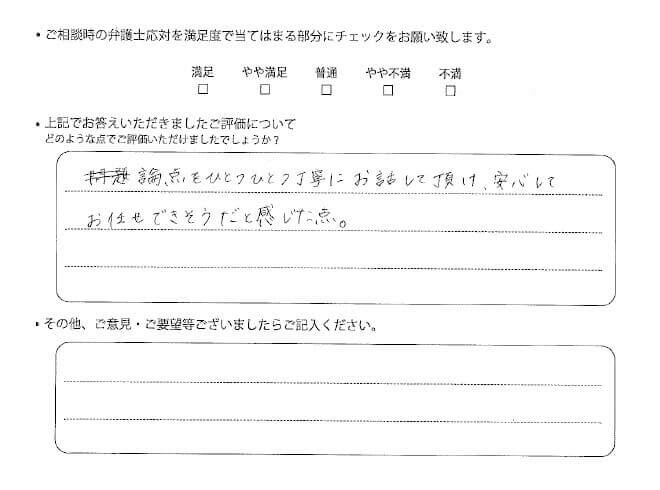 ・ご相談時の弁護士応対を満足度で当てはまる部分にチェックをお願い致します。
満足 やや満足 普通 やや不満 不満
□ □ □ □ □
・上記でお答えいただきましたご評価について
どのような点でご評価いただけましたでしょうか？
論点をひとつひとつ丁寧にお話して頂け、安心して
お任せできそうだと感じた点。
・その他、ご意見・ご要望等ございましたらご記入ください。